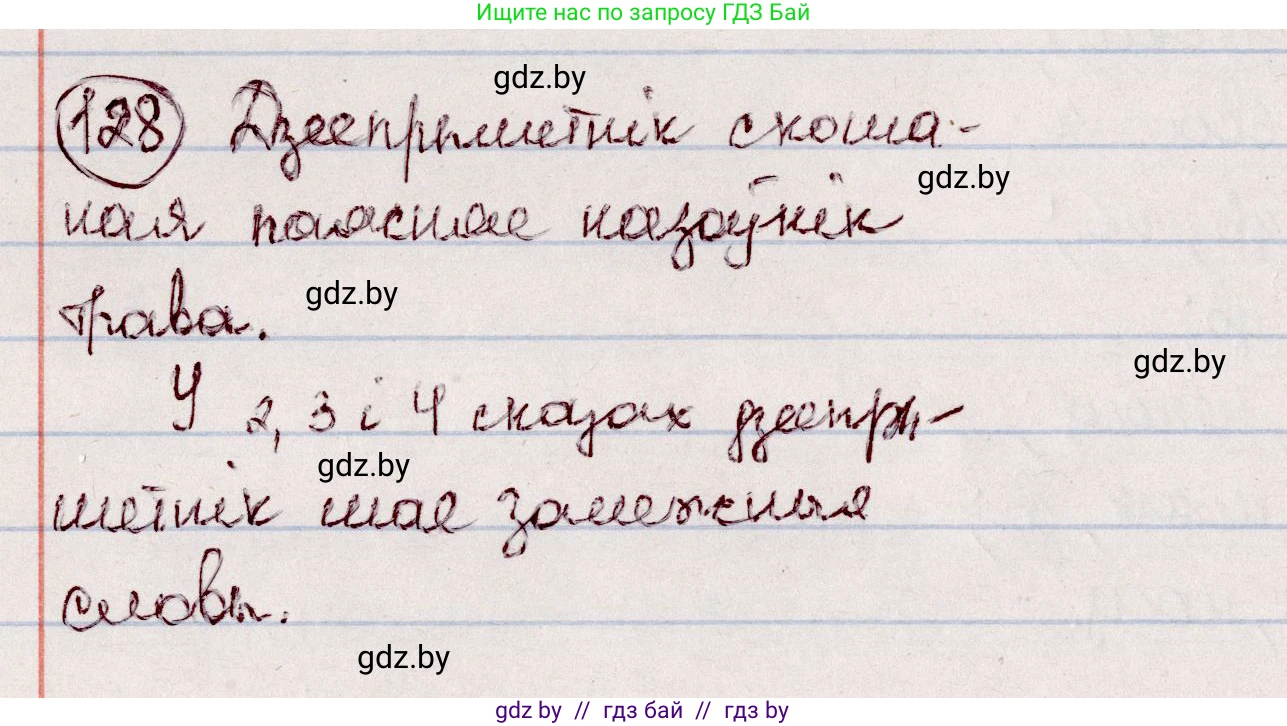 Ищите нас по запросу ГДЗ Бай
gdz.by
128 Дзеепрыметнік скоша-
gdz.by
ная паясняе назоўнік
gdz.by
трава.
gdz.by
У 2, 3 і 4 сказах дзеепры-
gdz.by
метнік мае залежныя
словы.
gdz.by
gdz by // гдз бай // гдз by